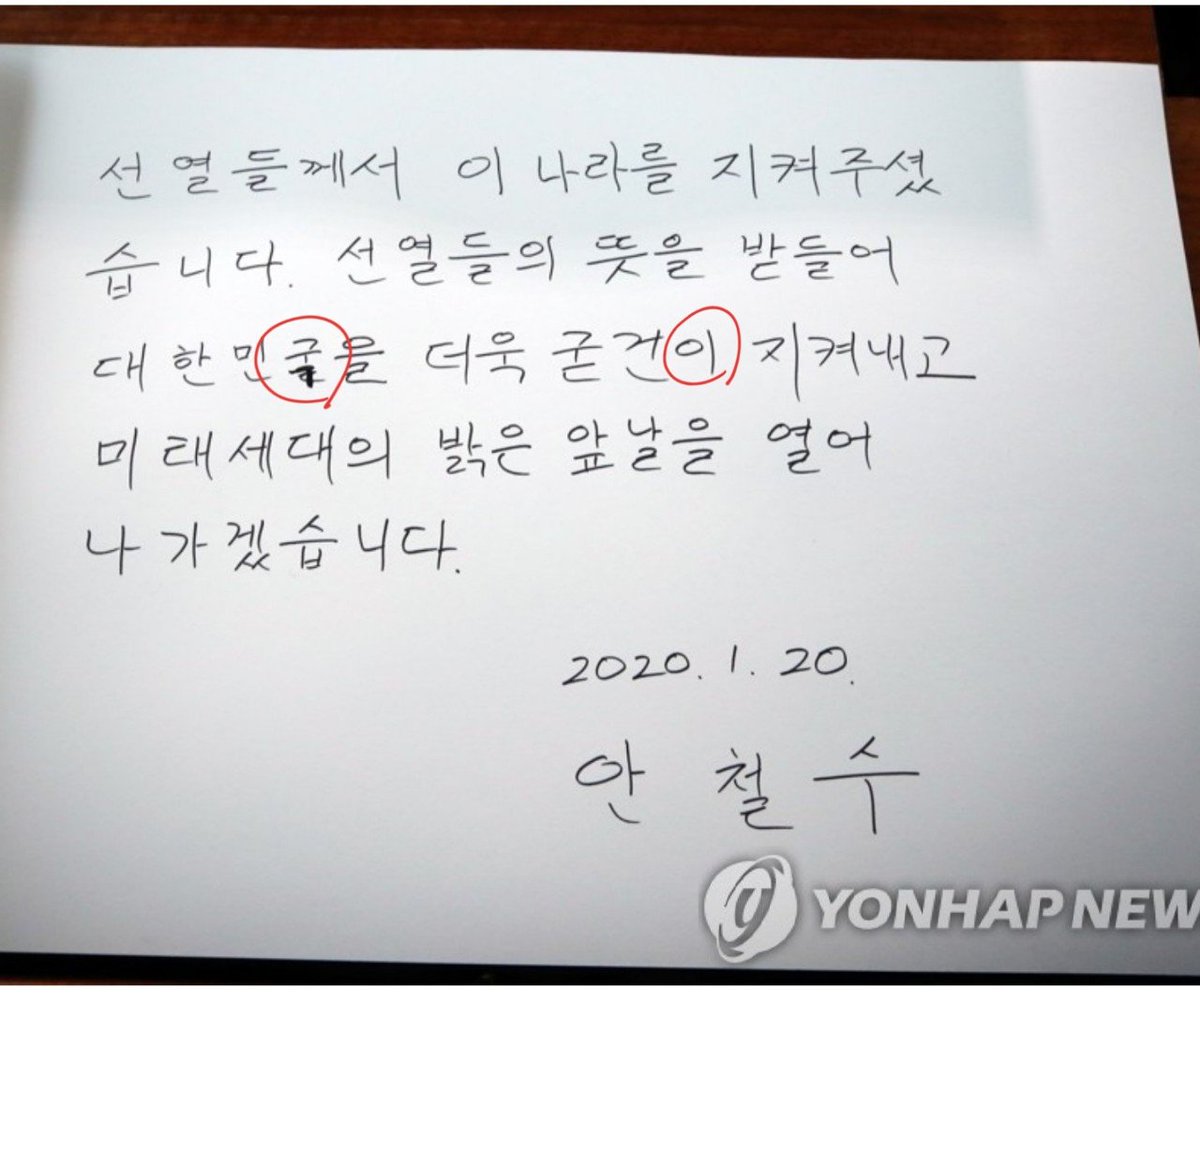 선열들께서 이 나라를 지켜주셨
습니다. 선열들의 뜻을 받들어
대한민국을 더욱 굳건이 지켜내고
미태세대의 밝은 앞날을 열어
나가겠습니다.
2020. 1. 20.
안 철 수
YONHAP NEW